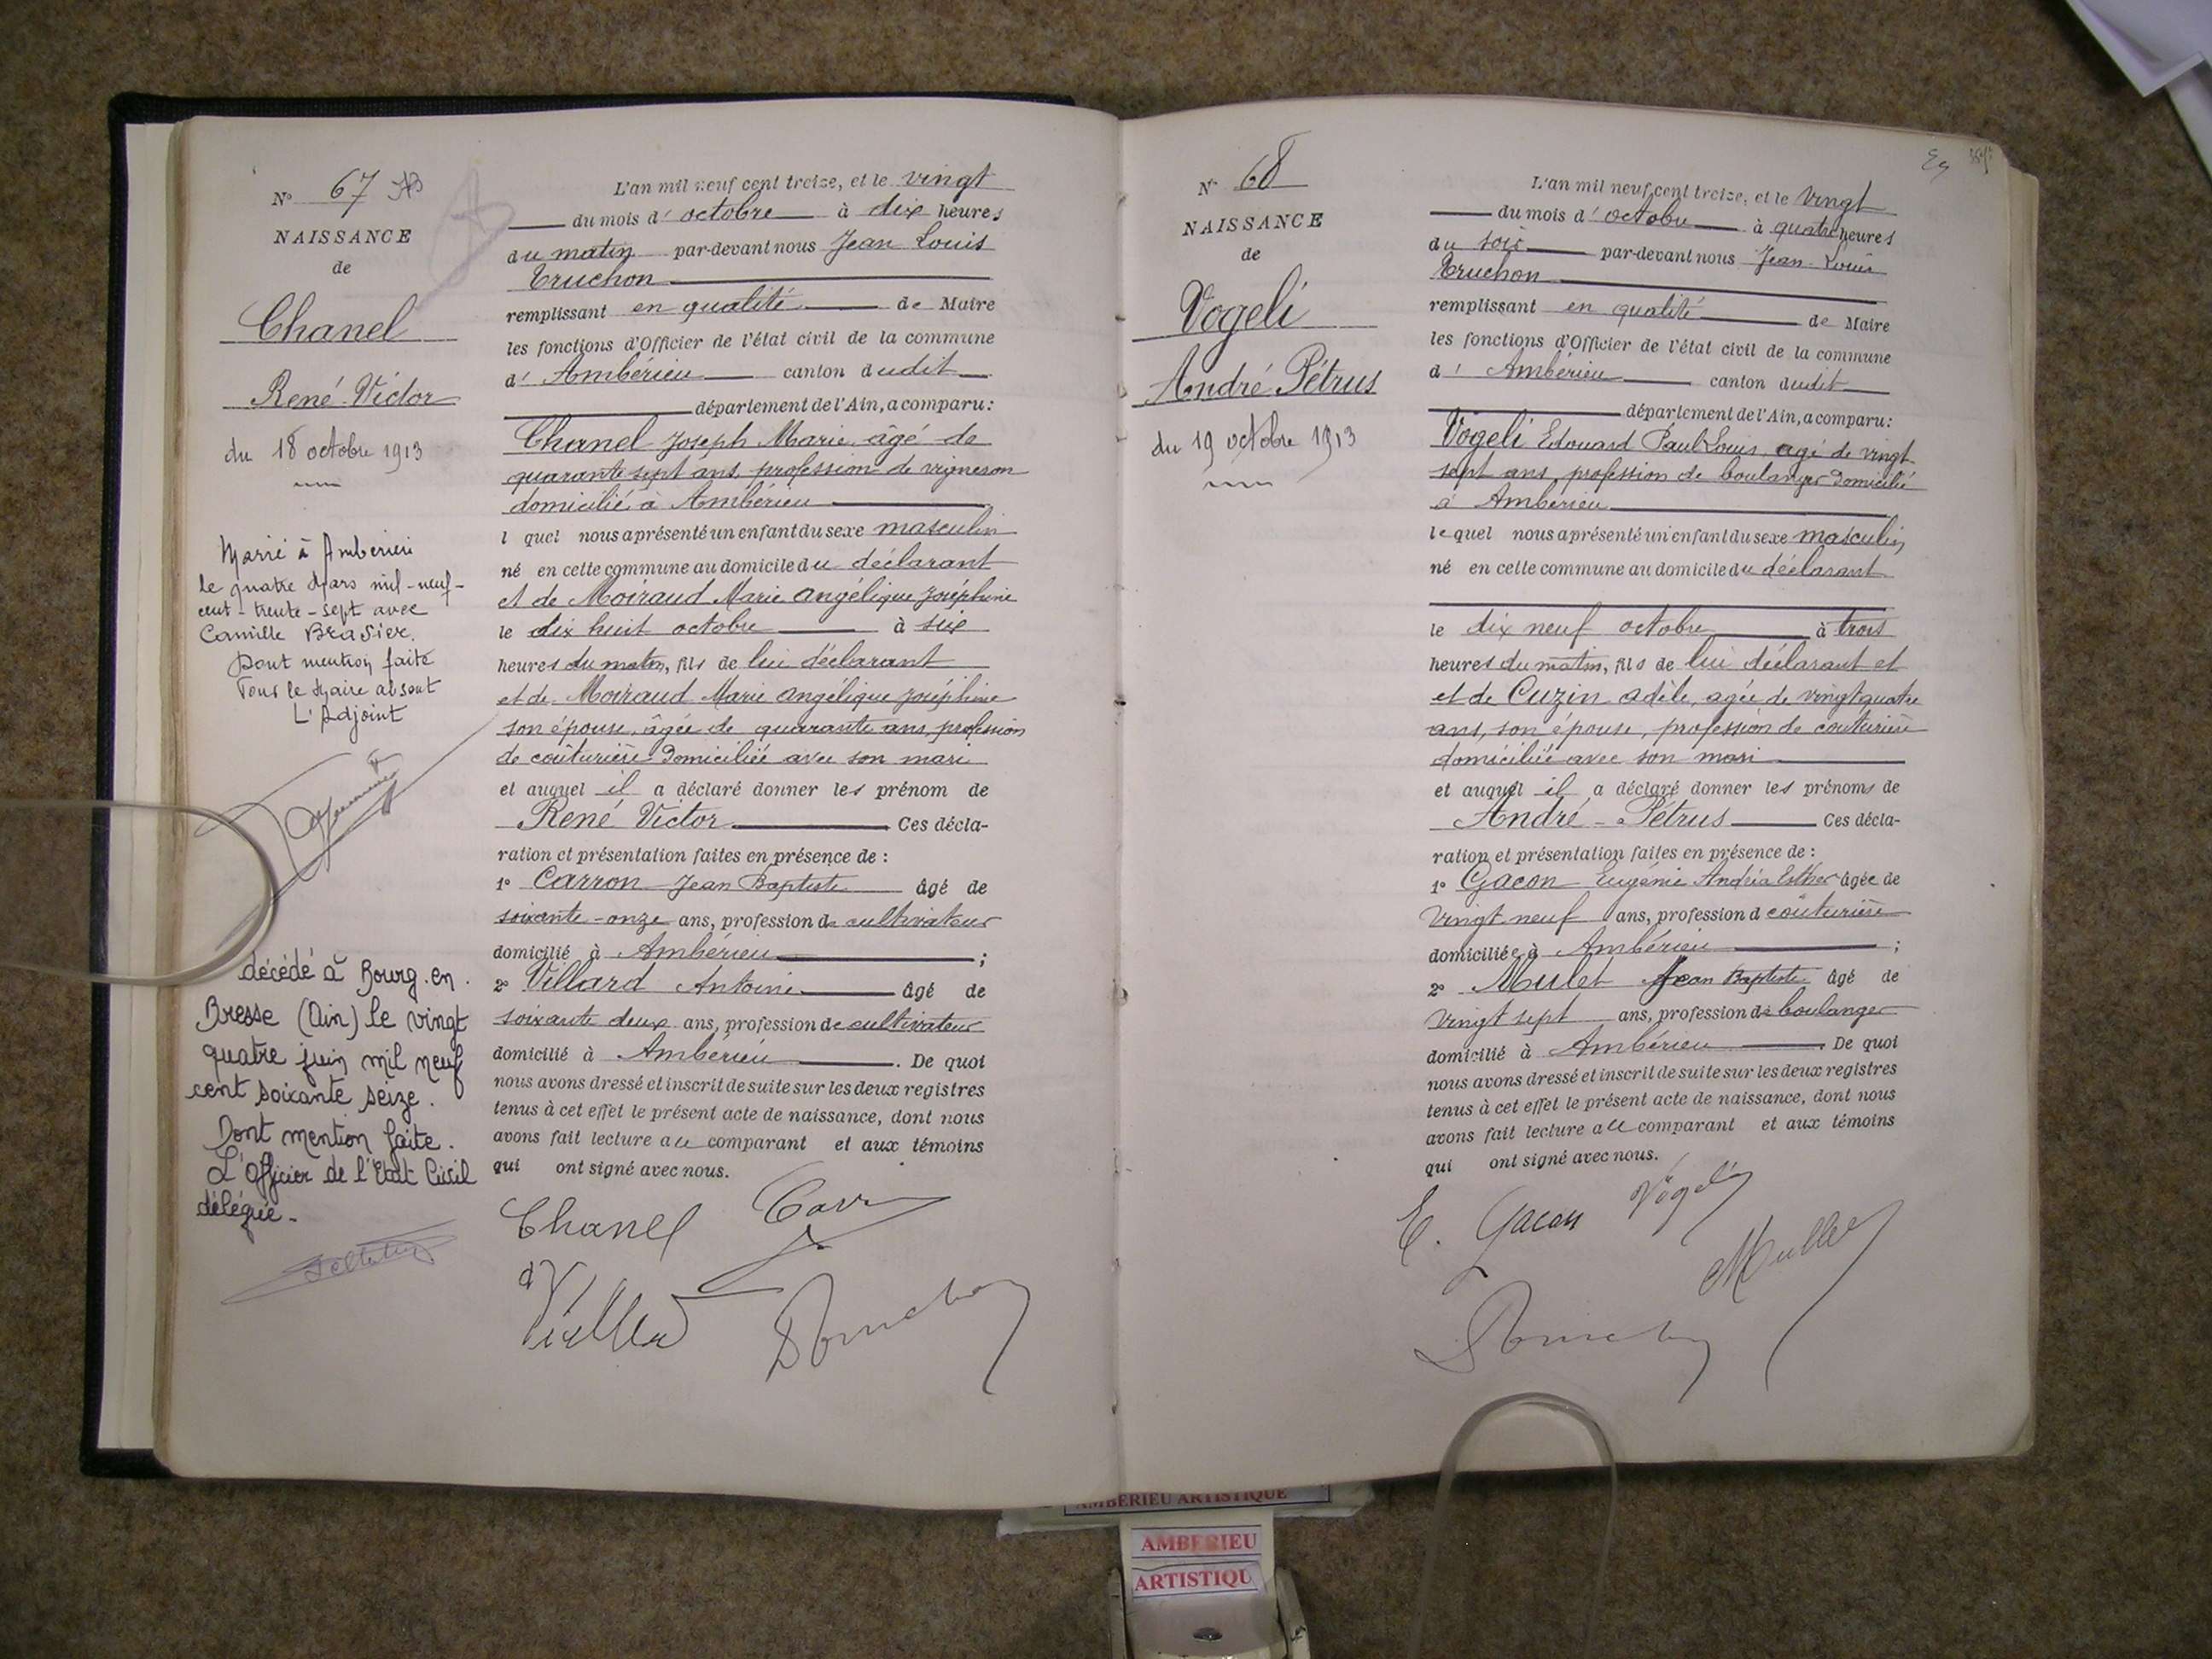 N° 67
NAISSANCE
de
Chanel
René Victor
du 18 octobre 1913
Marié à Amberieu
le quatre Mars mil-neuf-
cent-trente-sept avec
Camille Brasier.
Dont mention faite
Pour le Maire absent
L'Adjoint
décédé à Bourg-en-
Bresse (Ain) le vingt
quatre juin mil neuf
cent soixante seize.
Dont mention faite.
L'Officier de l'Etat Civil
délégué.
L'an mil neuf cent treize, et le vingt
du mois d'octobre à dix heures
du matin par-devant nous Jean Louis
Truchon
remplissant en qualité de Maire
les fonctions d'Officier de l'état civil de la commune
d'Ambérieu canton dudit
département de l'Ain, a comparu:
Chanel Joseph Marie âgé de
quarante sept ans, profession de vigneron
domicilié à Ambérieu
l quel nous a présenté un enfant du sexe masculin
né en cette commune au domicile du déclarant
et de Moiraud Marie Angélique Joséphine
le dix huit octobre à six
heures du matin, fils de lui déclarant
et de Moiraud Marie Angélique Joséphine
son épouse, âgée de quarante ans, profession
de couturière domiciliée avec son mari
et auquel il a déclaré donner les prénom de
René Victor Ces décla-
ration et présentation faites en présence de :
1° Carron Jean Baptiste âgé de
soixante-onze ans, profession de cultivateur
domicilié à Ambérieu ;
2° Villard Antoine âgé de
soixante deux ans, profession de cultivateur
domicilié à Ambérieu. De quoi
nous avons dressé et inscrit de suite sur les deux registres
tenus à cet effet le présent acte de naissance, dont nous
avons fait lecture au comparant et aux témoins
qui ont signé avec nous.
Chanel
N° 68
NAISSANCE
de
Vogeli
André Pétrus
du 19 octobre 1913
L'an mil neuf cent treize, et le vingt
du mois d'octobre à quatre heures
du soir par-devant nous Jean Louis
Truchon
remplissant en qualité de Maire
les fonctions d'Officier de l'état civil de la commune
d'Ambérieu canton dudit
département de l'Ain, a comparu:
Vogeli Edouard Paul Louis, agé de vingt
sept ans, profession de boulanger domicilié
à Ambérieu
lequel nous a présenté un enfant du sexe masculin
né en cette commune au domicile du déclarant
le dix neuf octobre à trois
heures du matin, fils de lui déclarant et
et de Cuzin Adèle, agée de vingt quatre
ans, son épouse, profession de couturière
domiciliée avec son mari
et auquel il a déclaré donner les prénoms de
André-Pétrus Ces décla-
ration et présentation faites en présence de :
1° Gacon Eugénie Andréa Esther âgée de
vingt neuf ans, profession d couturière
domiciliée à Ambérieu ;
2° Mulet Jean Baptiste âgé de
vingt sept ans, profession de boulanger
domicilié à Ambérieu. De quoi
nous avons dressé et inscrit de suite sur les deux registres
tenus à cet effet le présent acte de naissance, dont nous
avons fait lecture au comparant et aux témoins
qui ont signé avec nous.
E. Gacon Vogeli
AMBERIEU ARTISTIQUE
AMBERIEU
ARTISTIQU